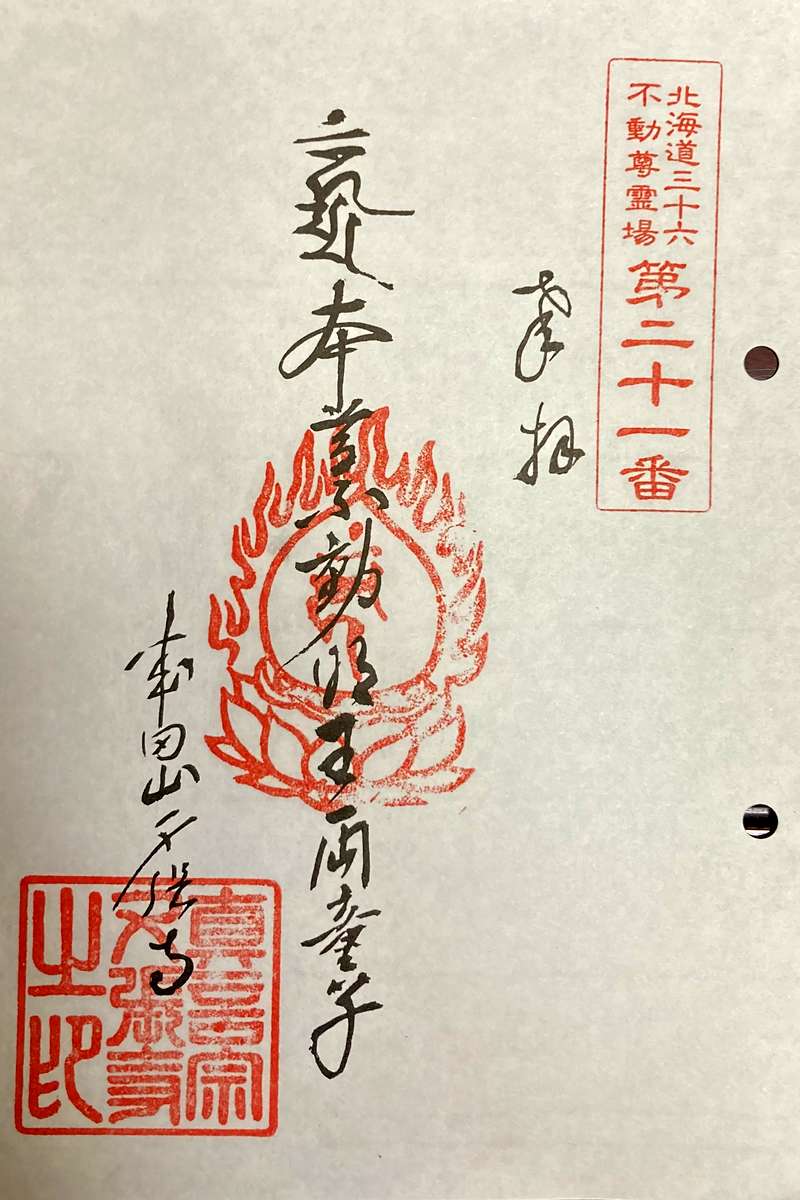 北海道三十六
不動尊靈場
第二十一番
奉拝
本尊不動明王両童子
田山
真言宗
之印